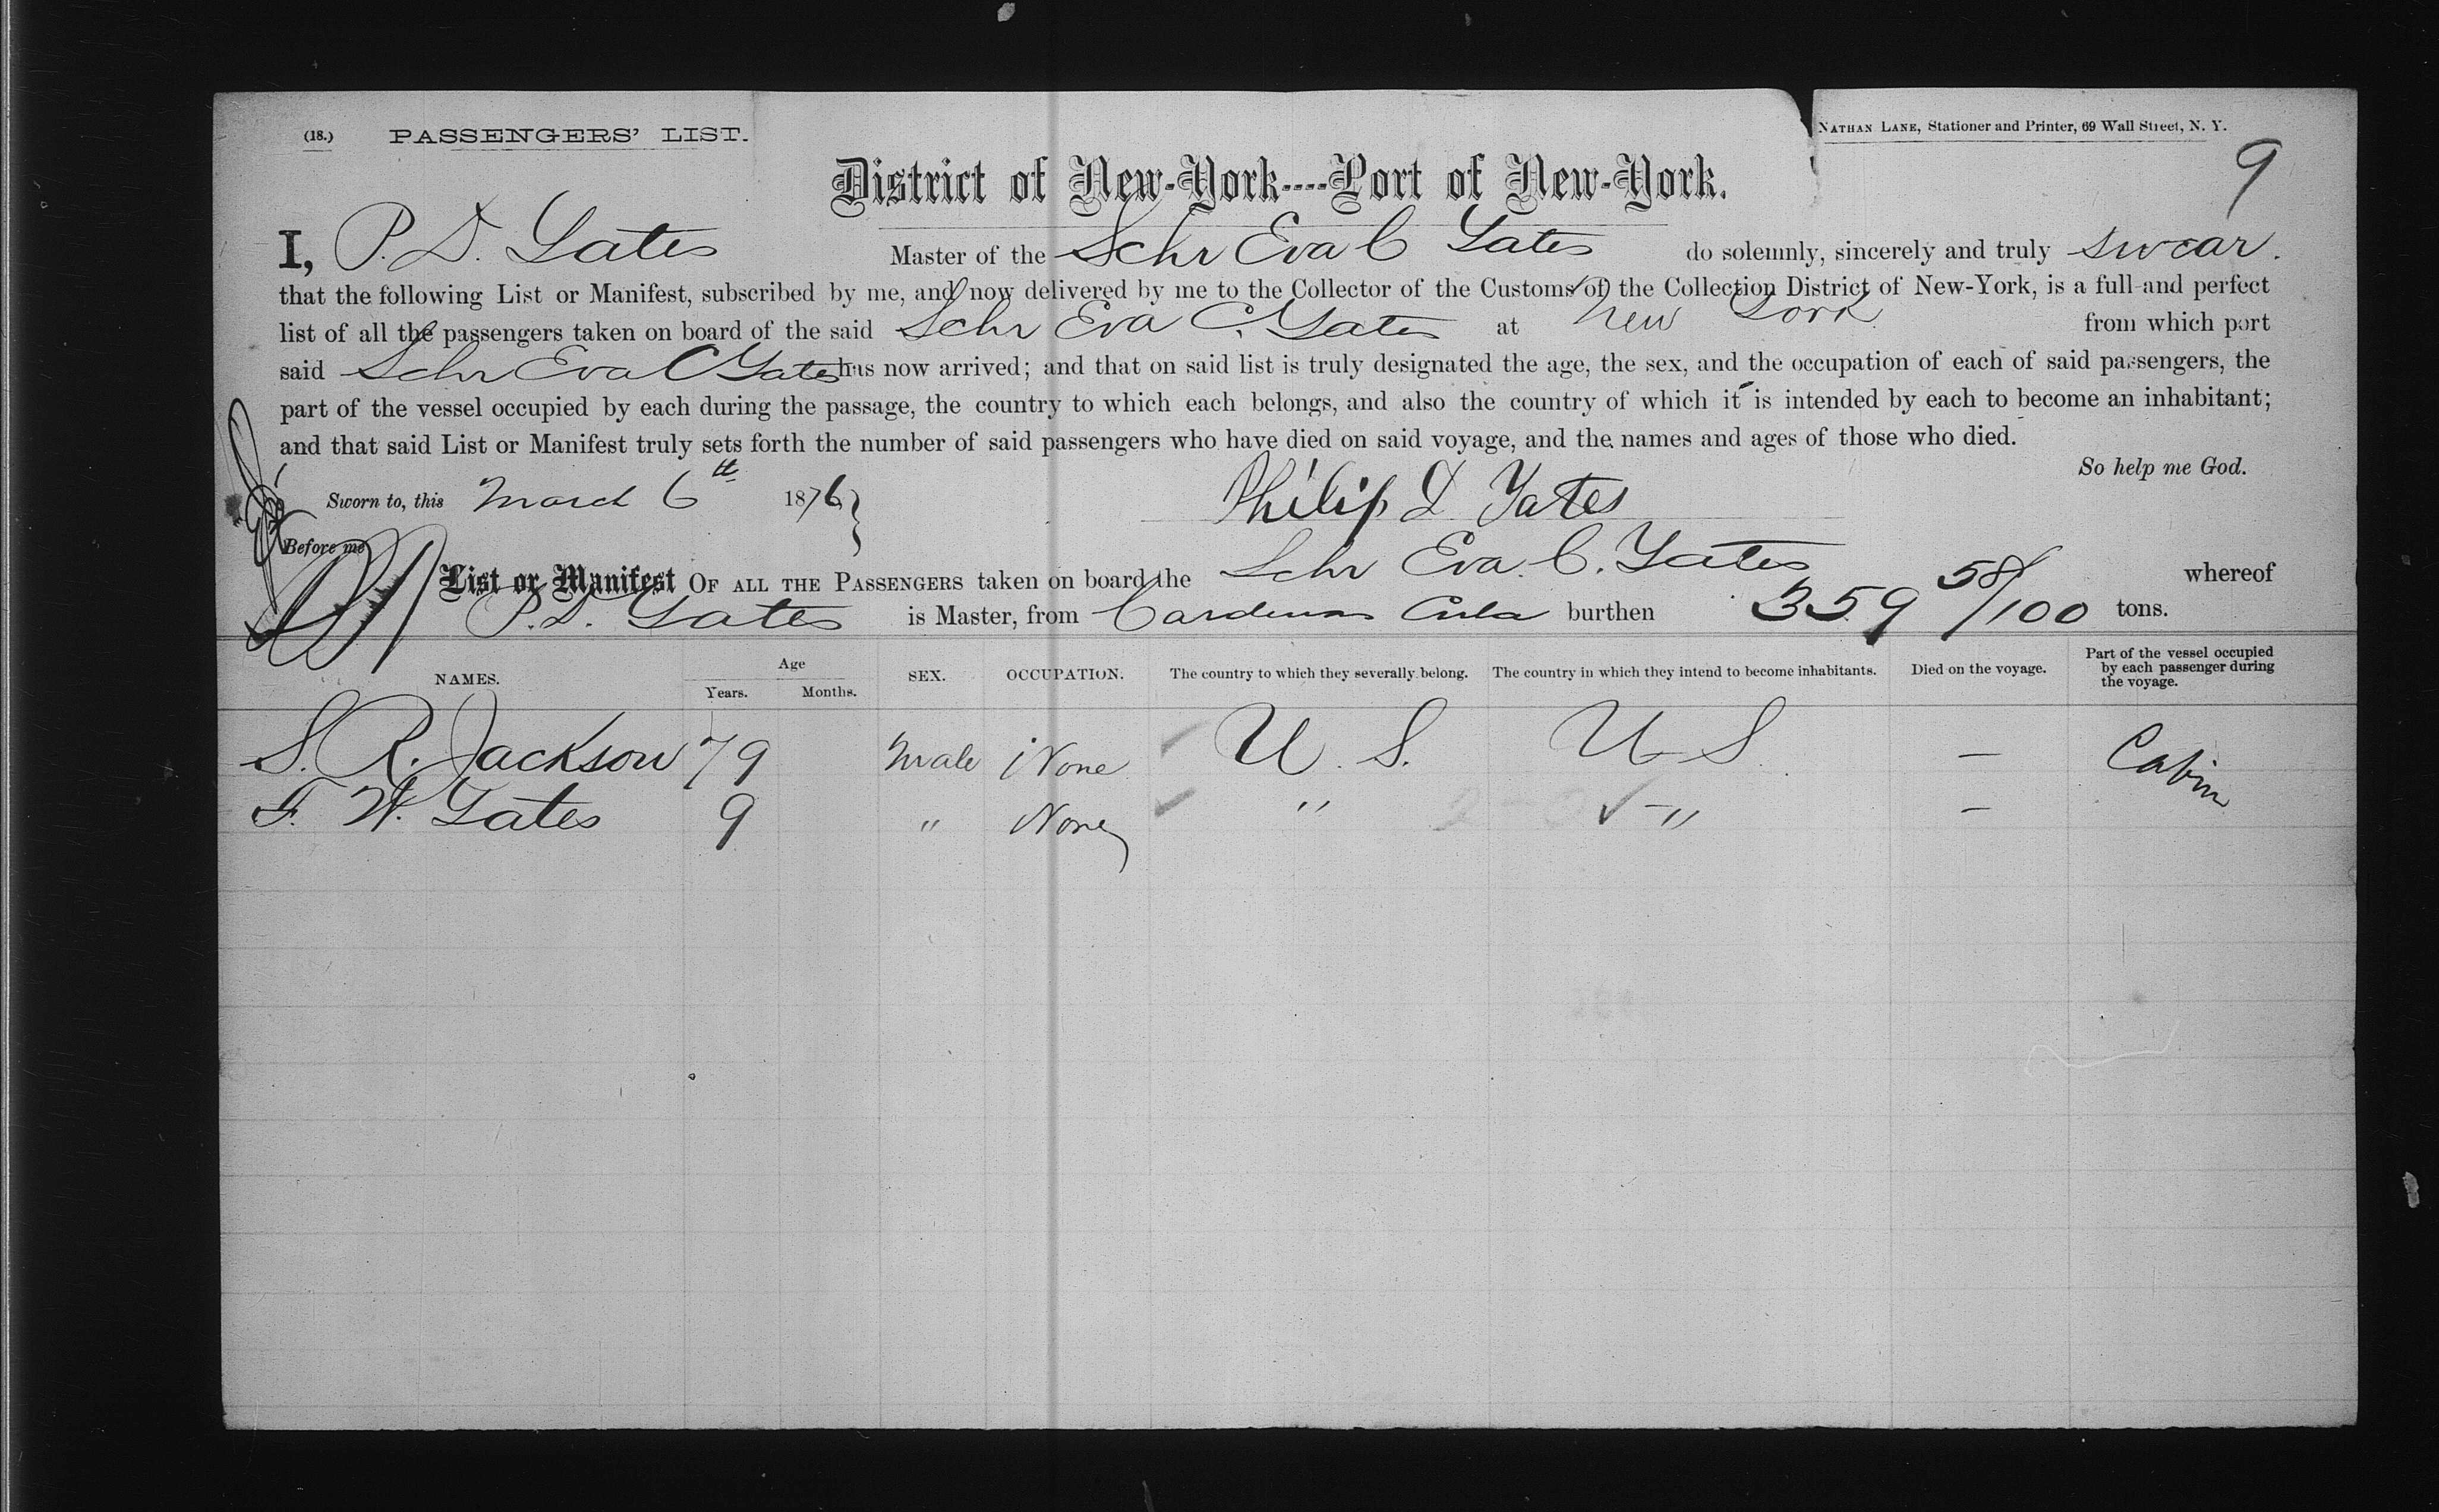 (18.) PASSENGERS' LIST. NATHAN LANE, Stationer and Printer, 69 Wall Street, N. Y.
9
District of New-York----Port of New-York.
I, P. D. Yates Master of the Schr Eva C Yates do solemnly, sincerely and truly swear.
that the following List or Manifest, subscribed by me, and now delivered by me to the Collector of the Customs of the Collection District of New-York, is a full and perfect
list of all the passengers taken on board of the said Schr Eva C. Yates at New York from which port
said Schr Eva C Yates has now arrived; and that on said list is truly designated the age, the sex, and the occupation of each of said passengers, the
part of the vessel occupied by each during the passage, the country to which each belongs, and also the country of which it is intended by each to become an inhabitant;
and that said List or Manifest truly sets forth the number of said passengers who have died on said voyage, and the names and ages of those who died.
So help me God.
Sworn to, this March 6th 1876 Philip D Yates
Before me
List or Manifest OF ALL THE PASSENGERS taken on board the Schr Eva. C. Yates whereof
P. D. Yates is Master, from Cardenas Cuba burthen 359 58/100 tons.
NAMES. Age Years. Months. SEX. OCCUPATION. The country to which they severally belong. The country in which they intend to become inhabitants. Died on the voyage. Part of the vessel occupied by each passenger during the voyage.
S. R. Jackson 79 Male None U. S. U S — Cabin
F. W. Yates 9 " None " " —